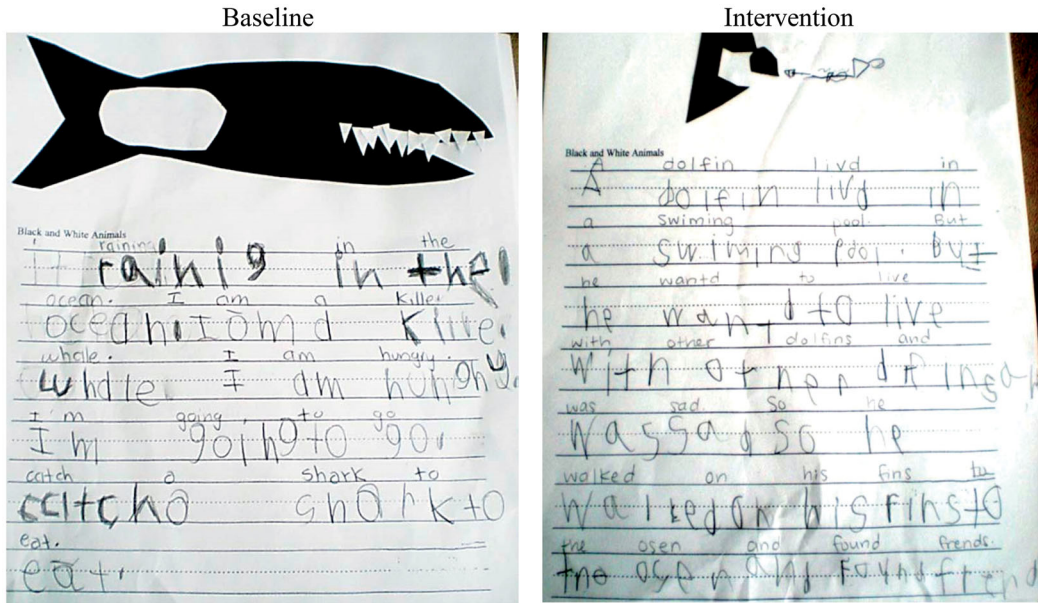 Baseline
Black and White Animals
raining in the
rainig in the
ocean. I am a killer
ocean. I am a Kille
whale. I am hungry.
whale I am
I'm going to go
I'm going to go
catch a shark to
catch a shark to
eat.
eat.
Intervention
Black and White Animals
A dolfin livd in
A dolfin livd in
a swiming pool. But
a swiming pool. But
he wantd to live
he wantd to live
with other dolfins and
with other
was sad. So he
was sad So he
walked on his fins to
walked on his fins to
the osen and found frends.
the osen and found frend